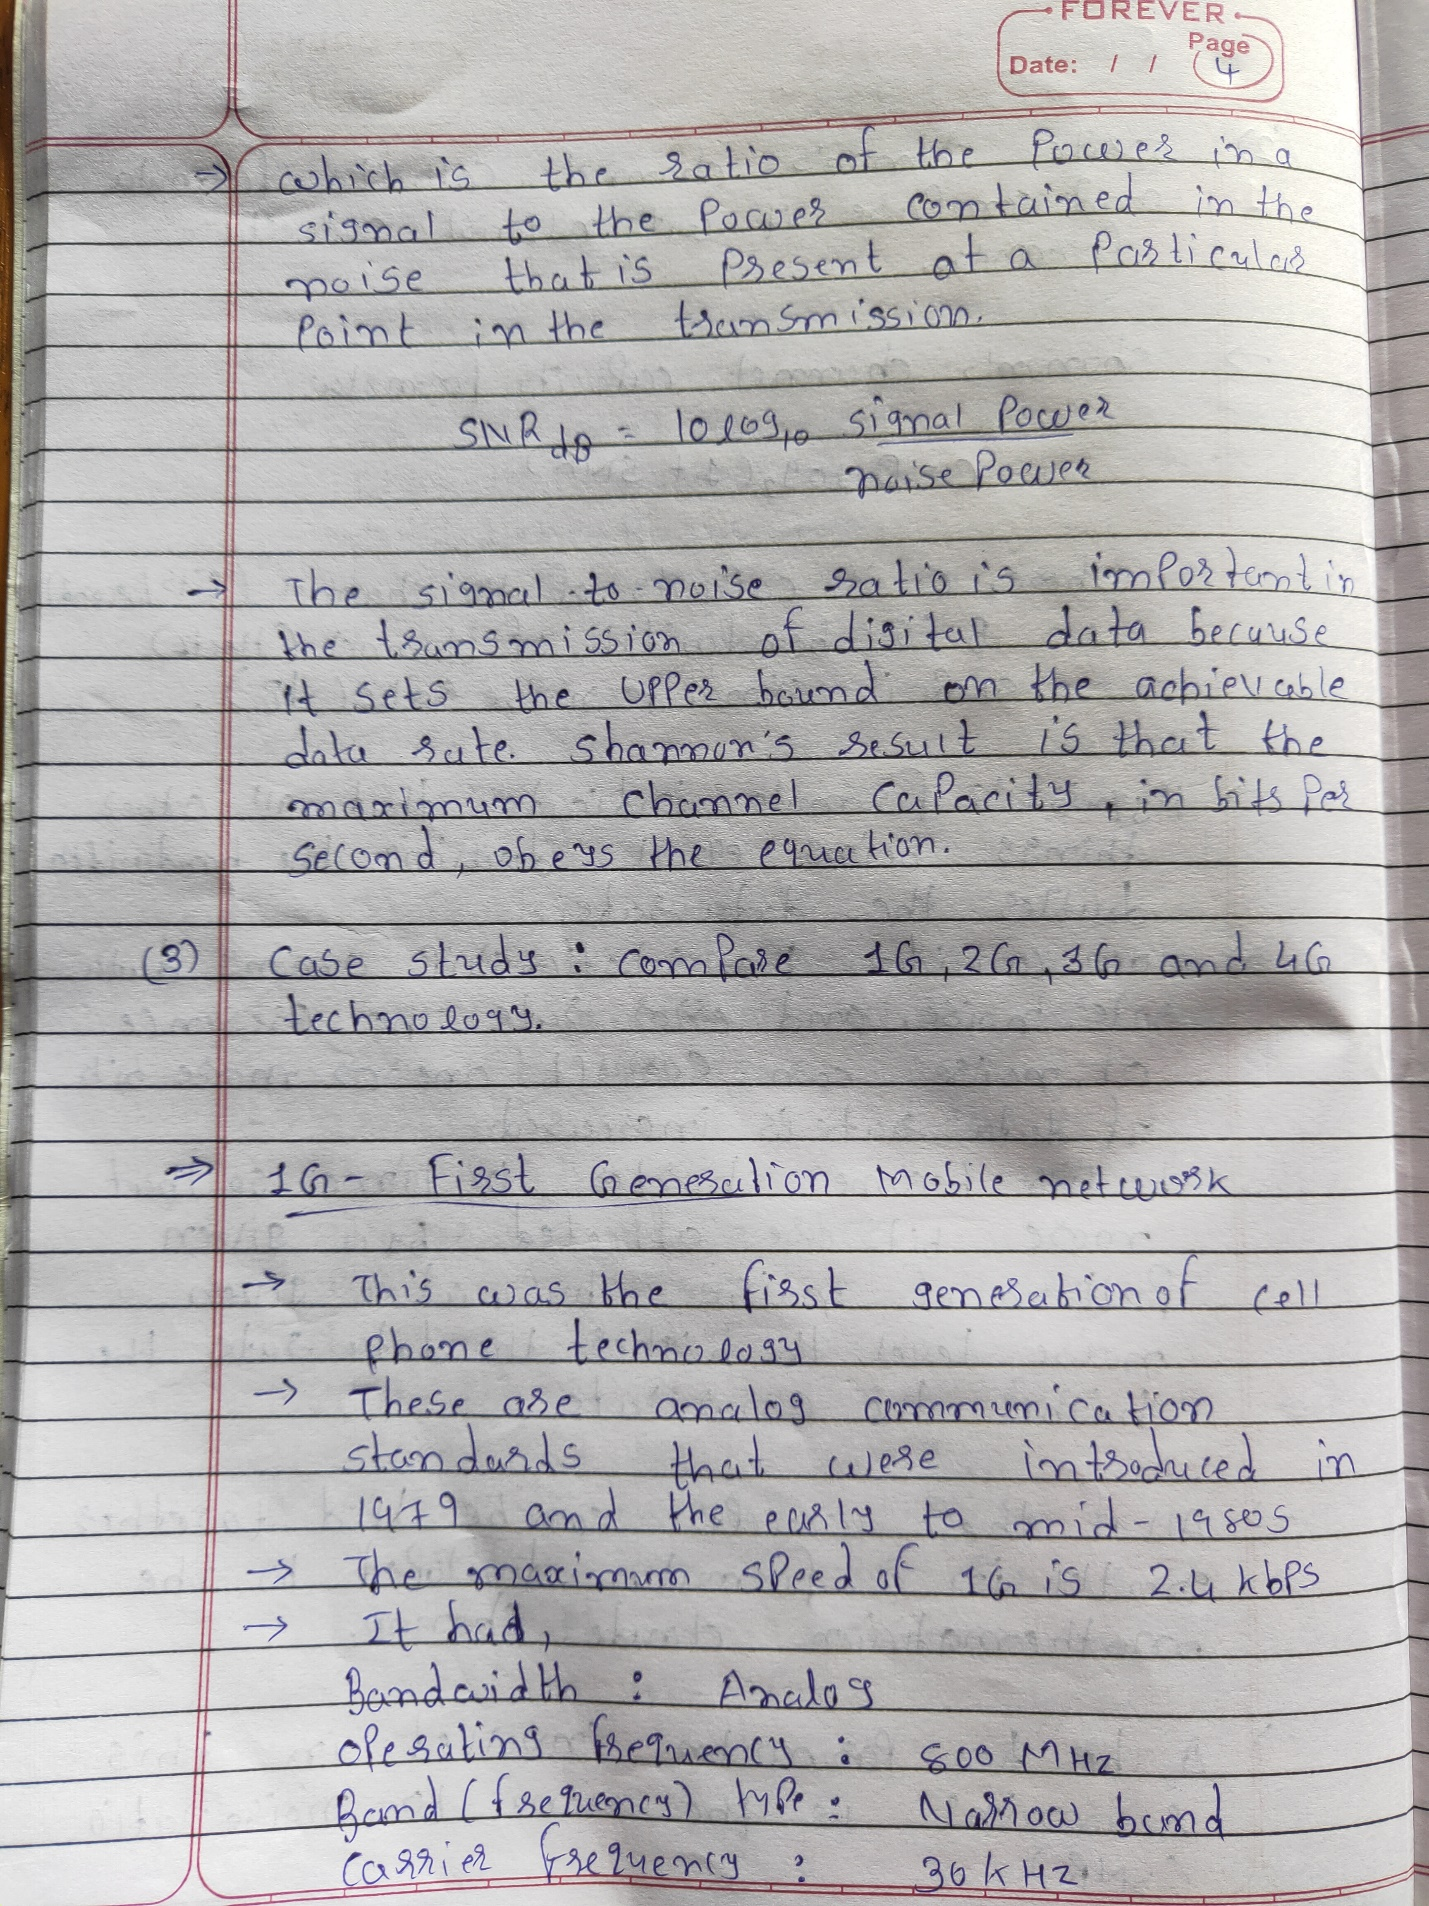 FOREVER
Page
Date: / / 4
→ which is the ratio of the Power in a
signal to the Power contained in the
noise that is Present at a Particular
Point in the transmission.
SNR dB = 10 log10 signal Power
noise Power
→ The signal-to-noise ratio is important in
the transmission of digital data because
it sets the upper bound on the achievable
data rate. Shannon's result is that the
maximum channel capacity, in bits Per
second, obeys the equation.
(3) Case study : compare 1G, 2G, 3G and 4G
technology.
⇒ 1G - First Generation Mobile network
→ This was the first generation of cell
phone technology
→ These are analog communication
standards that were introduced in
1979 and the early to mid-1980s
→ The maximum speed of 1G is 2.4 kbps
→ It had,
Bandwidth : Analog
operating frequency : 800 MHz
Band (frequency) type : Narrow band
carrier frequency : 30 kHz